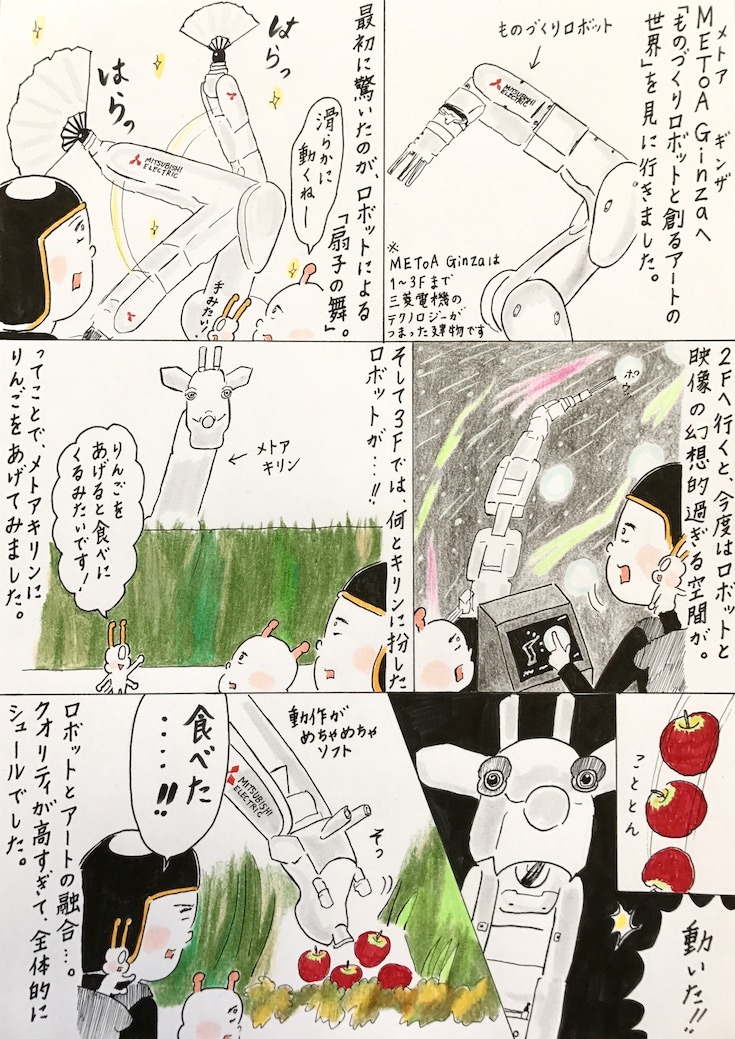 メトア　ギンザ
METoA Ginzaへ
「ものづくりロボットと創るアートの
世界」を見に行きました。
ものづくりロボット
MITSUBISHI
ELECTRIC
※
METoA Ginzaは
1〜3Fまで
三菱電機の
テクノロジーが
つまった建物です
最初に驚いたのが、ロボットによる
「扇子の舞」。
はらっ
はらっ
滑らかに
動くねー
MITSUBISHI
ELECTRIC
手みたい!
2Fへ行くと、今度はロボットと
映像の幻想的過ぎる空間が。
ポウッ
そして3Fでは、何とキリンに扮した
ロボットが…!!
メトア
キリン
りんごを
あげると食べに
くるみたいです!
ってことで、メトアキリンに
りんごをあげてみました。
ことん
動いた!!
動作が
めちゃめちゃ
ソフト
MITSUBISHI
ELECTRIC
そっ
食べた
‥‥!!
ロボットとアートの融合…。
クオリティが高すぎて、全体的に
シュールでした。